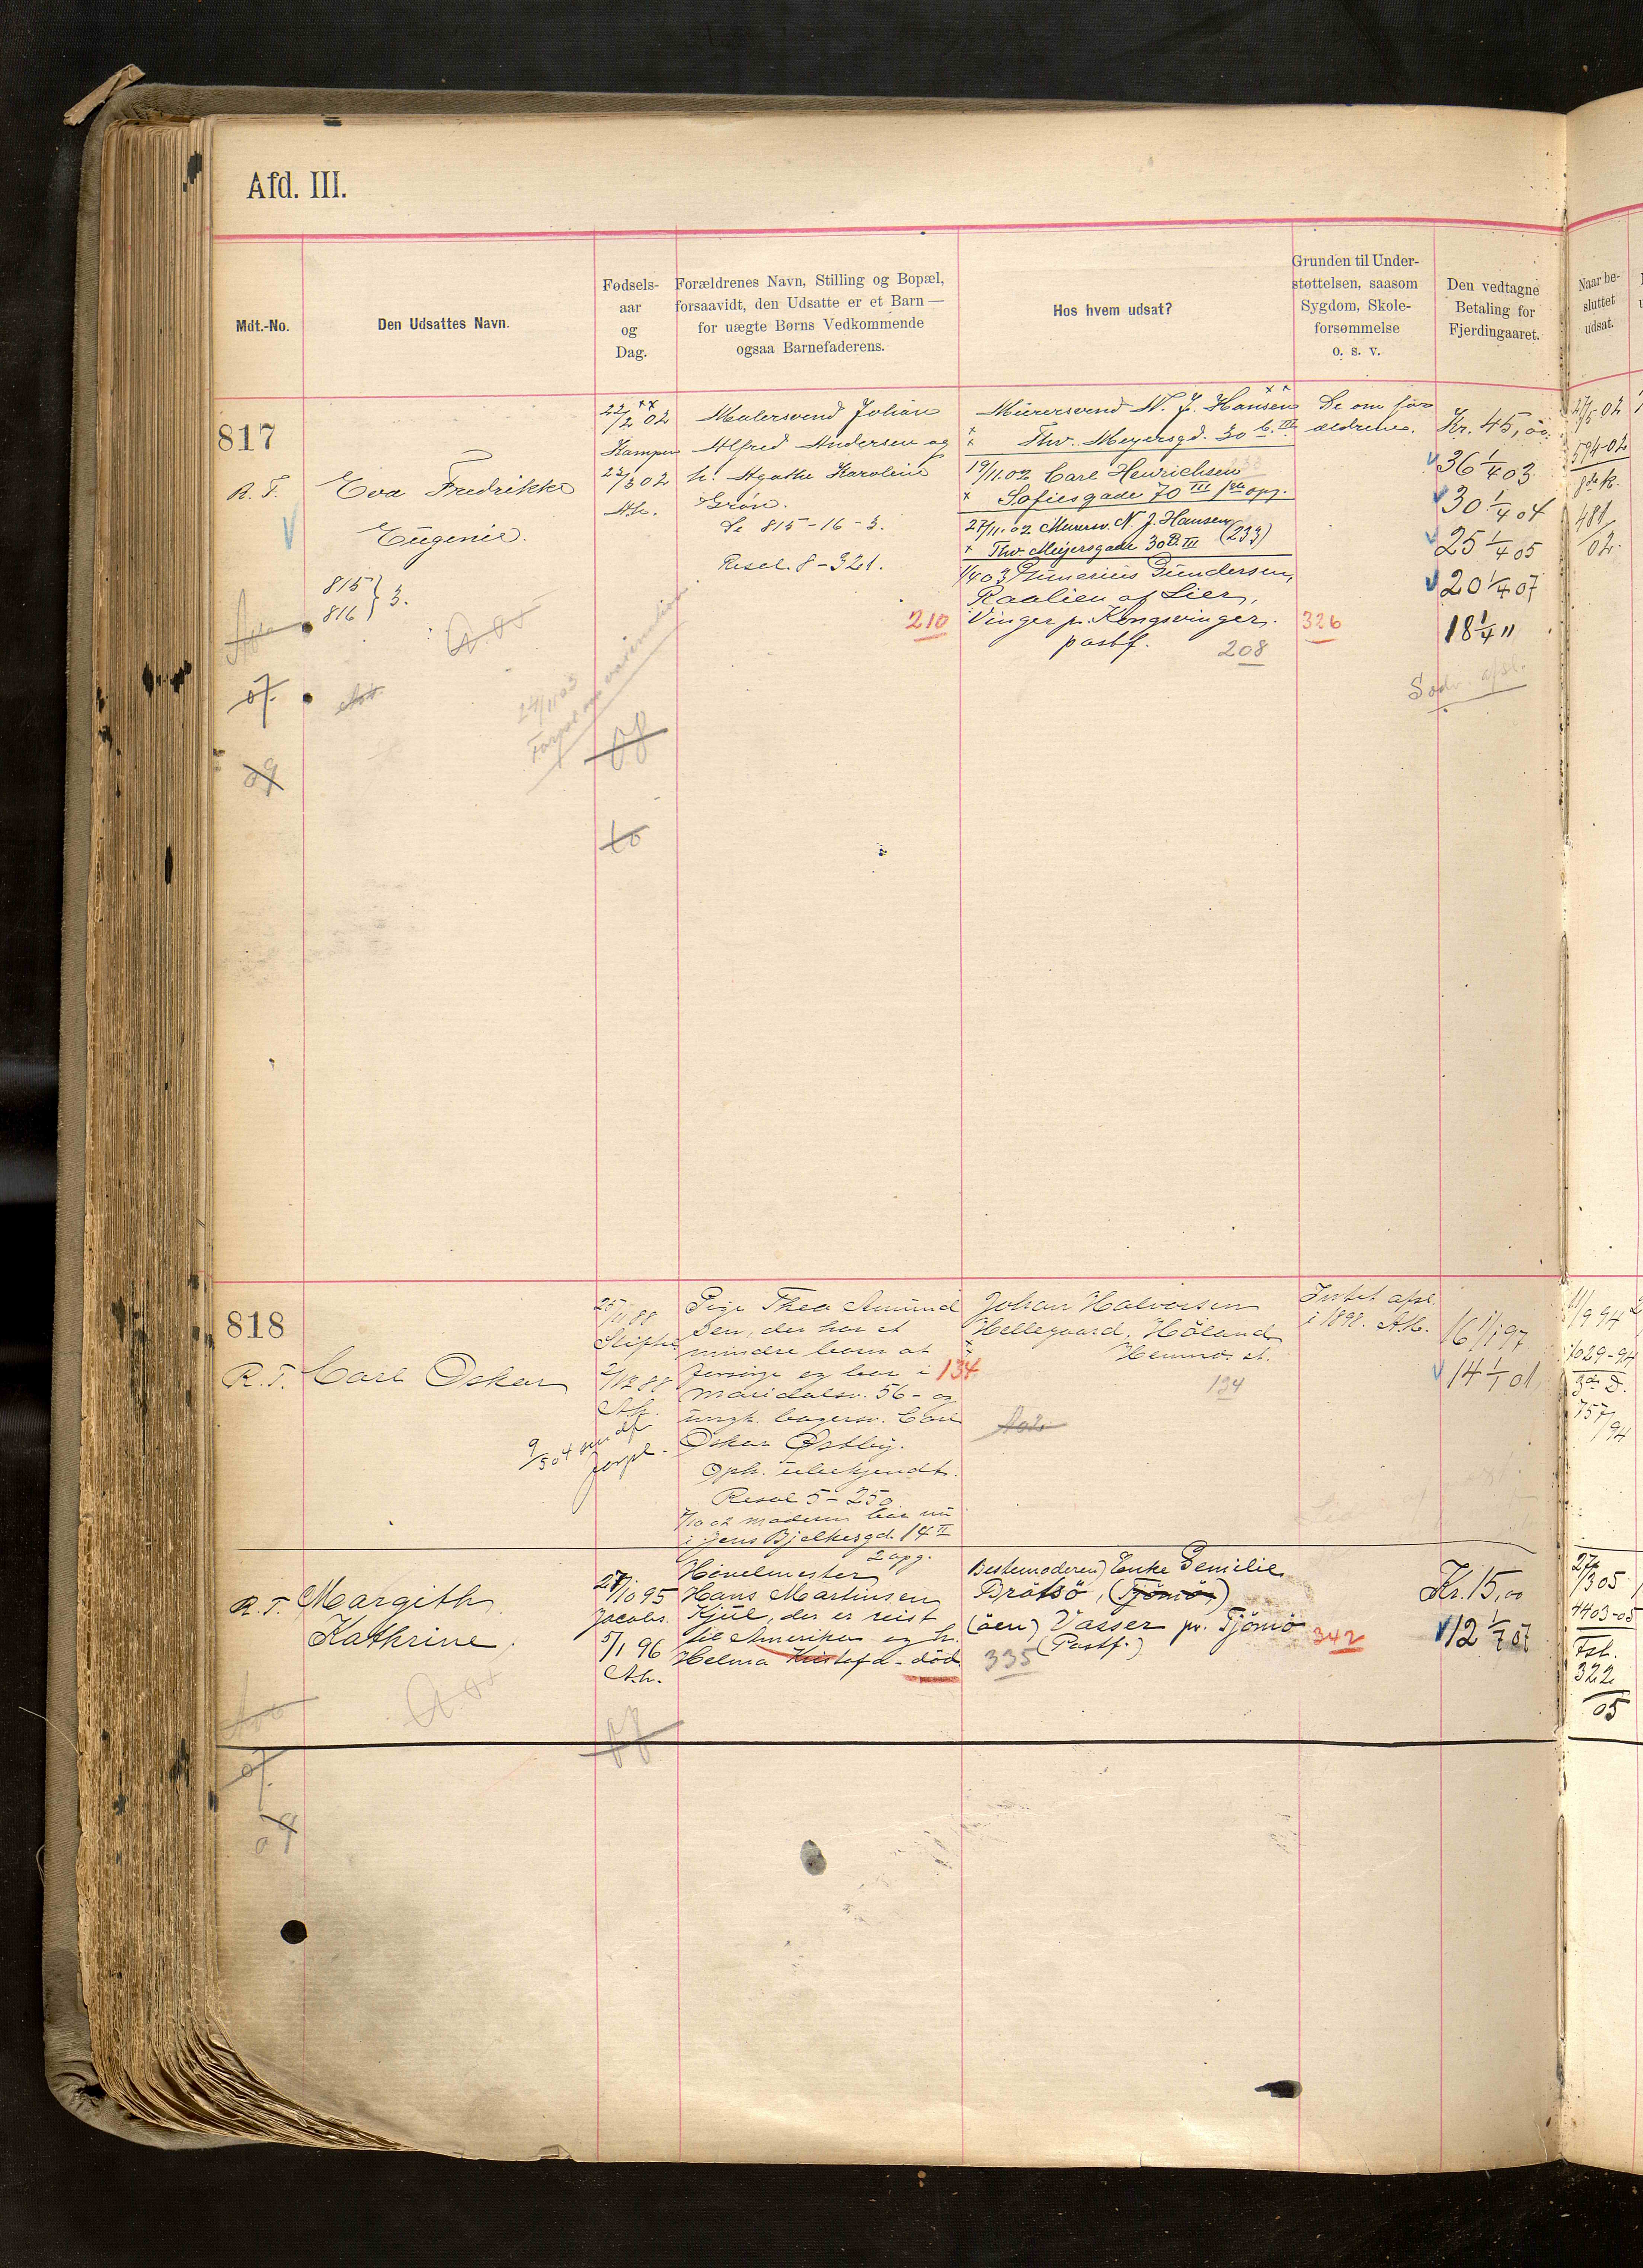 Afd. III.
Mdt.-No.
Den Udsattes Navn.
Fødsels-
aar
og
Dag.
Forældrenes Navn, Stilling og Bopæl,
forsaavidt, den Udsatte er et Barn —
for uægte Børns Vedkommende
ogsaa Barnefaderens.
Hos hvem udsat?
Grunden til Under-
støttelsen, saasom
Sygdom, Skole-
forsømmelse
o. s. v.
Den vedtagne
Betaling for
Fjerdingaaret.
Naar be-
sluttet
udsat.
817
R. T.
Eva Fredrikke
Eugenie.
815 } 3.
816
07
09
22/2 02
Kampen
23/3 02
A.k.
08
10
Malersvend Johan
Alfred Andersen og
h. Agathe Karoline
Grøn.
Se 815-16-3.
Resol. 8-321.
210
Murersvend N. J. Hansen
Thv. Meyersgd. 30 b. III
19/11.02 Carl Henrichsen
Sofiesgade 70 III opg.
27/11.02 Murersv. N. J. Hansen
Thv. Meyersgade 30 B. III (233)
1/4 03 Gunerius Gundersen,
Raalien af Lier,
Vinger pr. Kongsvinger.
postf.
208
Se om for
ældrene.
326
Kr. 45,00.
36 1/4 03
30 1/4 04
25 1/4 05
20 1/4 07
18 1/4 11
27/5 02
594-02
481/02.
818
R. T.
Carl Oskar
25/11 88
2/12 88
A.k.
Pige Thea Amund
sen, der har et
mindre barn at
forsørge og bor i
Maridalsv. 56 - og
ungk. bagersv. Carl
Oskar Østby.
Oph. ubekjendt.
Resol 5-250
7/10 02 moderen bor nu
i Jens Bjelkesgd. 14 II
2 opg.
134
Johan Halvorsen
Hellegaard, Höland
Hemnes st.
134
Intet afsl.
i 1898. A.k.
16 1/1 97
14 1/1 01
11/9 94
1029-94
757/94
R. T.
Margith
Kathrine.
07
09
27/10 95
Jacobs.
5/1 96
A.k.
08
Høvelmester
Hans Martinsen
Kjul, der er reist
til Amerika og h.
Helma Kristofa - död
Bestemoderen) Enke Gemilie
Brötsö, (Tjömö)
(öen) Vasser pr. Tjömö
(Postf.)
335
342
Kr. 15,00
12 1/1 07
27/3 05
4403-05
Fst.
322
05